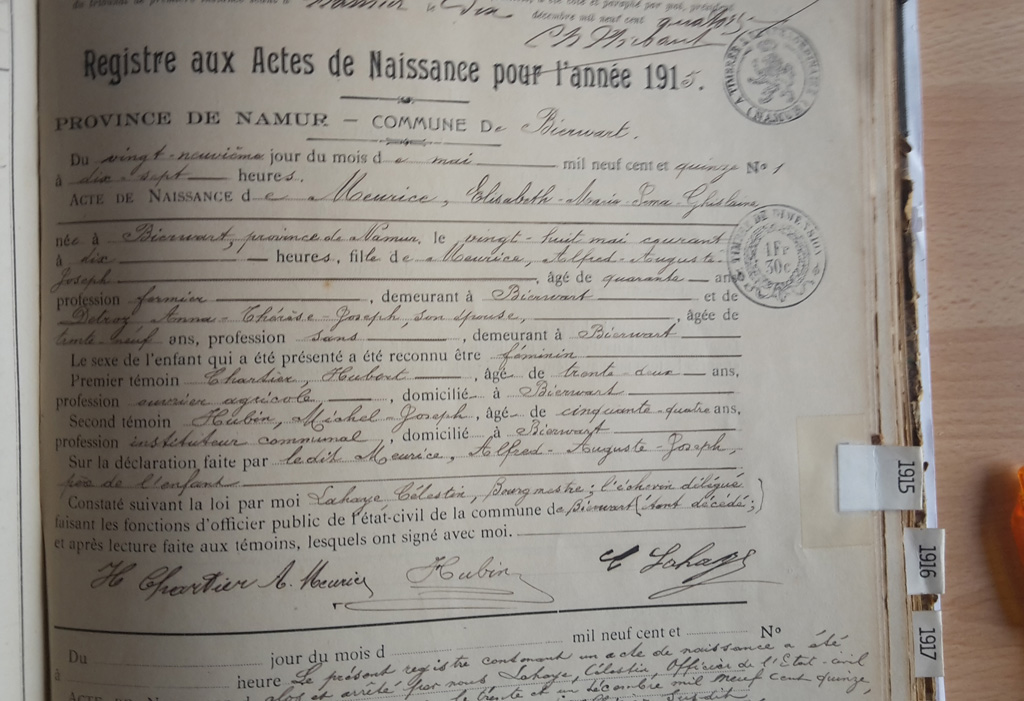 du tribunal de première instance séant à Namur a été coté et paraphé par nous, président
le dix décembre mil neuf cent quatorze
Registre aux Actes de Naissance pour l'année 1915.
A TIMBRE EXTRAORDINAIRE (NAMUR)
PROVINCE DE NAMUR – COMMUNE De Bierwart.
Du vingt-neuvième jour du mois de mai mil neuf cent et quinze No 1
à dix-sept heures.
ACTE DE NAISSANCE de Meurice, Elisabeth-Maria-Irma-Ghislaine
née à Bierwart, province de Namur, le vingt-huit mai courant
à dix heures, fille de Meurice, Alfred-Auguste-
TIMBRE DE DIMENSION 1Fr 30c
Joseph, âgé de quarante ans
profession fermier, demeurant à Bierwart et de
Detroz Anna-Thérèse-Joseph, son épouse, âgée de
trente-neuf ans, profession sans, demeurant à Bierwart
Le sexe de l'enfant qui a été présenté a été reconnu être féminin
Premier témoin Chartier, Hubert, âgé de trente-deux ans,
profession ouvrier agricole, domicilié à Bierwart
Second témoin Hubin, Michel-Joseph, âgé de cinquante-quatre ans,
profession instituteur communal, domicilié à Bierwart
Sur la déclaration faite par ledit Meurice, Alfred-Auguste-Joseph,
père de l'enfant
Constaté suivant la loi par moi Lahaye Célestin, Bourgmestre; l'échevin délégué
faisant les fonctions d'officier public de l'état-civil de la commune de Bierwart (étant décédé;)
et après lecture faite aux témoins, lesquels ont signé avec moi.
H Chartier A. Meurice Hubin C Lahaye
Du jour du mois d mil neuf cent et No
à heure Le présent registre contenant un acte de naissance a été
clos et arrêté par nous Lahaye, Célestin, Officier de l'Etat-civil
ACTE DE NAISSANCE le trente et un décembre mil neuf cent quinze,
Susdit
1915
1916
1917